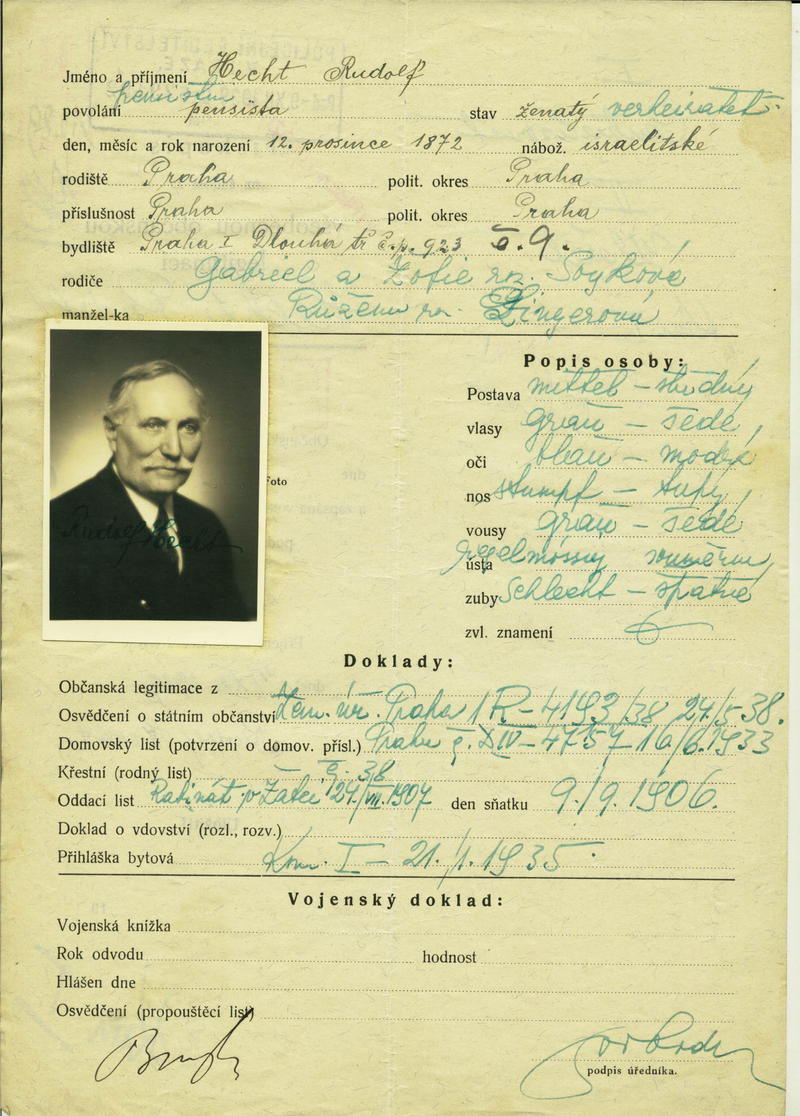 Jméno a příjmení Hecht Rudolf
pensista
povolání pensista stav ženatý verheiratet
den, měsíc a rok narození 12. prosince 1872 nábož. israelitské
rodiště Praha polit. okres Praha
příslušnost Praha polit. okres Praha
bydliště Praha I Dlouhá tř č.p. 923 č. 9.
rodiče Gabriel a Žofie roz. Soyková
manžel-ka Růžena roz. Lingerová
Popis osoby:
Postava mittel - střední
vlasy grau - šedé
oči blau - modré
Foto
nos stumpf - tupý
Rudolf Hecht
vousy grau - šedé
ústa regelmässig souměrná
zuby Schlecht - špatné
zvl. znamení
Doklady:
Občanská legitimace z
Osvědčení o státním občanství zem. úř. Praha 1R-4193/38 24/5-38.
Domovský list (potvrzení o domov. přísl.) Praha č. XIV-4757-16/6.1933
Křestní (rodný list) - č. 38
Oddací list Rabinát v Žatci 24/VII.1907 den sňatku 9./9.1906.
Doklad o vdovství (rozl., rozv.)
Přihláška bytová Kom. I - 21./1.1935.
Vojenský doklad:
Vojenská knížka
Rok odvodu hodnost
Hlášen dne
Osvědčení (propouštěcí list)
podpis úředníka.